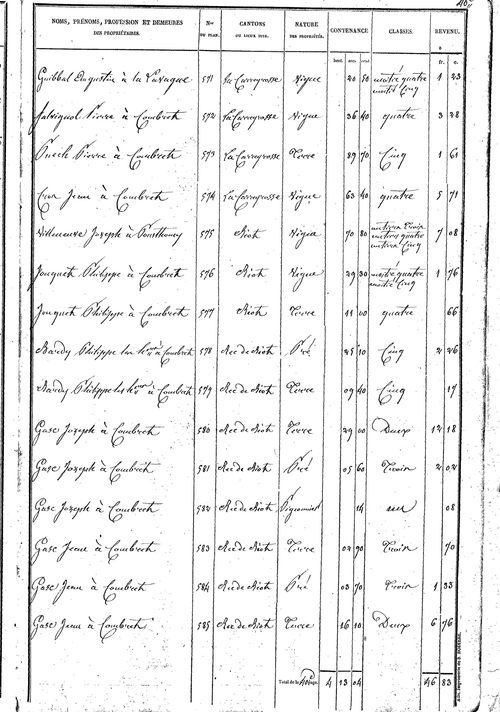 NOMS, PRÉNOMS, PROFESSION ET DEMEURES DES PROPRIÉTAIRES. Nos DU PLAN. CANTONS OU LIEUX DITS. NATURE DES PROPRIÉTÉS. CONTENANCE. CLASSES. REVENU.
hect. ares. cent. fr. c.
Guibbal Augustin à la 571 La Carreyrasse Vigne 20 50 moitié quatre moitié Cinq 1 23
Pierre à Combret 572 La Carreyrasse Vigne 36 40 quatre 3 28
Puech Pierre à Combret 573 La Carreyrasse Terre 89 70 Cinq 1 61
Cros Jean à Combret 574 La Carreyrasse Vigne 63 40 quatre 5 71
Villeneuve Joseph à Pousthomy 575 Riols Vigne 70 80 un tiers Trois un tiers quatre un tiers Cinq 7 08
Jouquet Philippe à Combret 576 Riols Vigne 29 30 moitié quatre moitié Cinq 1 76
Jouquet Philippe à Combret 577 Riols Terre 11 00 quatre 66
Bardy Philippe à Combret 578 Rec de Riols Pré 25 10 Cinq 2 26
Bardy Philippe à Combret 579 Rec de Riols Terre 09 40 Cinq 17
Gasc Joseph à Combret 580 Rec de Riols Terre 29 00 Deux 12 18
Gasc Joseph à Combret 581 Rec de Riols Pré 05 60 Trois 2 02
Gasc Joseph à Combret 582 Rec de Riols Pigeonnier 14 08
Gasc Jean à Combret 583 Rec de Riols Terre 02 90 Trois 70
Gasc Jean à Combret 584 Rec de Riols Pré 03 70 Trois 1 33
Gasc Jean à Combret 585 Rec de Riols Terre 16 10 Deux 6 76
Total de la page. 4 13 04 46 83